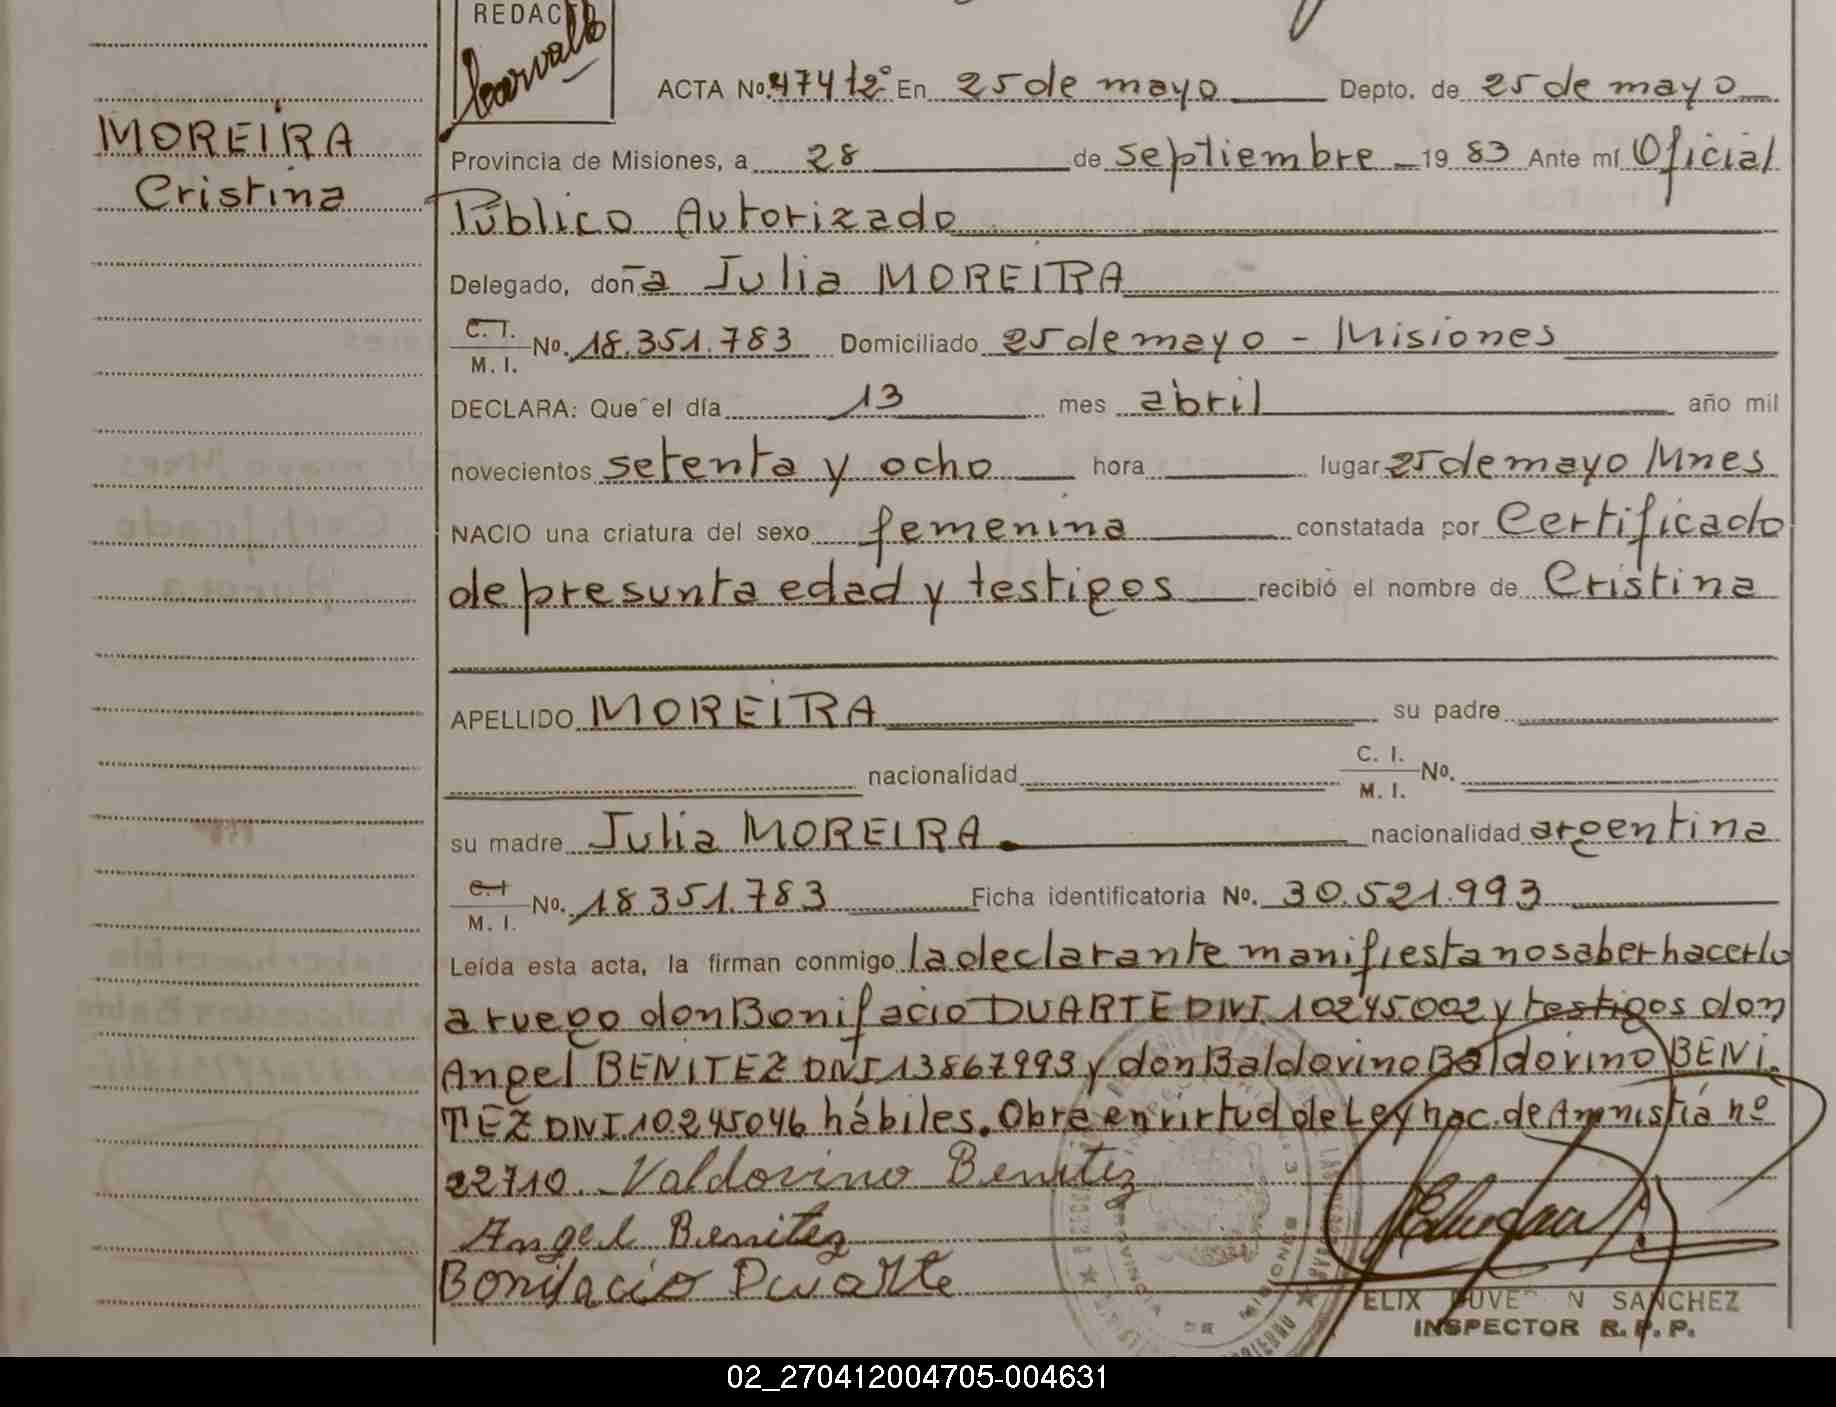 REDACTO
Carvallo
MOREIRA
Cristina
ACTA Nº 474 t2º En 25 de mayo Depto. de 25 de mayo
Provincia de Misiones, a 28 de septiembre 19 83 Ante mí Oficial
Público Autorizado
Delegado, doña Julia MOREIRA
C. I.
M. I. Nº. 18.351.783 Domiciliado 25 de mayo - Misiones
DECLARA: Que el día 13 mes abril año mil
novecientos setenta y ocho hora lugar 25 de mayo Mnes
NACIO una criatura del sexo femenina constatada por Certificado
de presunta edad y testigos recibió el nombre de Cristina
APELLIDO MOREIRA su padre
nacionalidad C. I.
M. I. Nº.
su madre Julia MOREIRA. nacionalidad argentina
C. I
M. I. Nº. 18351.783 Ficha identificatoria Nº. 30.521.993
Leída esta acta, la firman conmigo la declarante manifiesta no saber hacerlo
a ruego don Bonifacio DUARTE DNI 10245002 y testigos don
Angel BENITEZ DNI 13867993 y don Baldovino Baldovino BENI.
TEZ DNI 10245046 hábiles. Obra en virtud de Ley nac. de Amnistía nº
22710. Valdovino Benitez
Angel Benitez
Bonifacio Duarte
ELIX SANCHEZ
INSPECTOR R. P. P.
PROVINCIA DE MISIONES
02_270412004705-004631